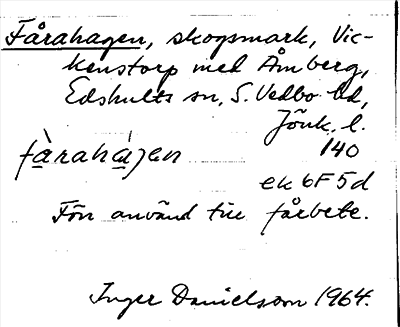 Fårahagen, skogsmark, Vic-
kenstorp med Åmberg,
Edshults sn, S. Vedbo hd,
Jönk. l.
fàrahájen 140
ek 6F5d
Förr använd till fårbete.
Inger Danielsson 1964.